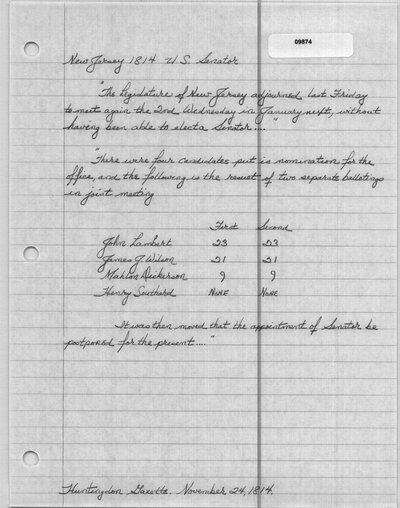 09874
New Jersey 1814 U.S. Senator
"The legislature of New Jersey adjourned last Friday
to meet again the 2nd Wednesday in January next, without
having been able to elect a Senator...."
"There were four candidates put in nomination for the
office, and the following is the result of two separate ballotings
in joint meeting
First Second
John Lambert 23 23
James J. Wilson 21 21
Mahlon Dickerson 9 9
Henry Southard None None
It was then moved that the appointment of Senator be
postponed for the present...."
Huntingdon Gazette. November 24, 1814.